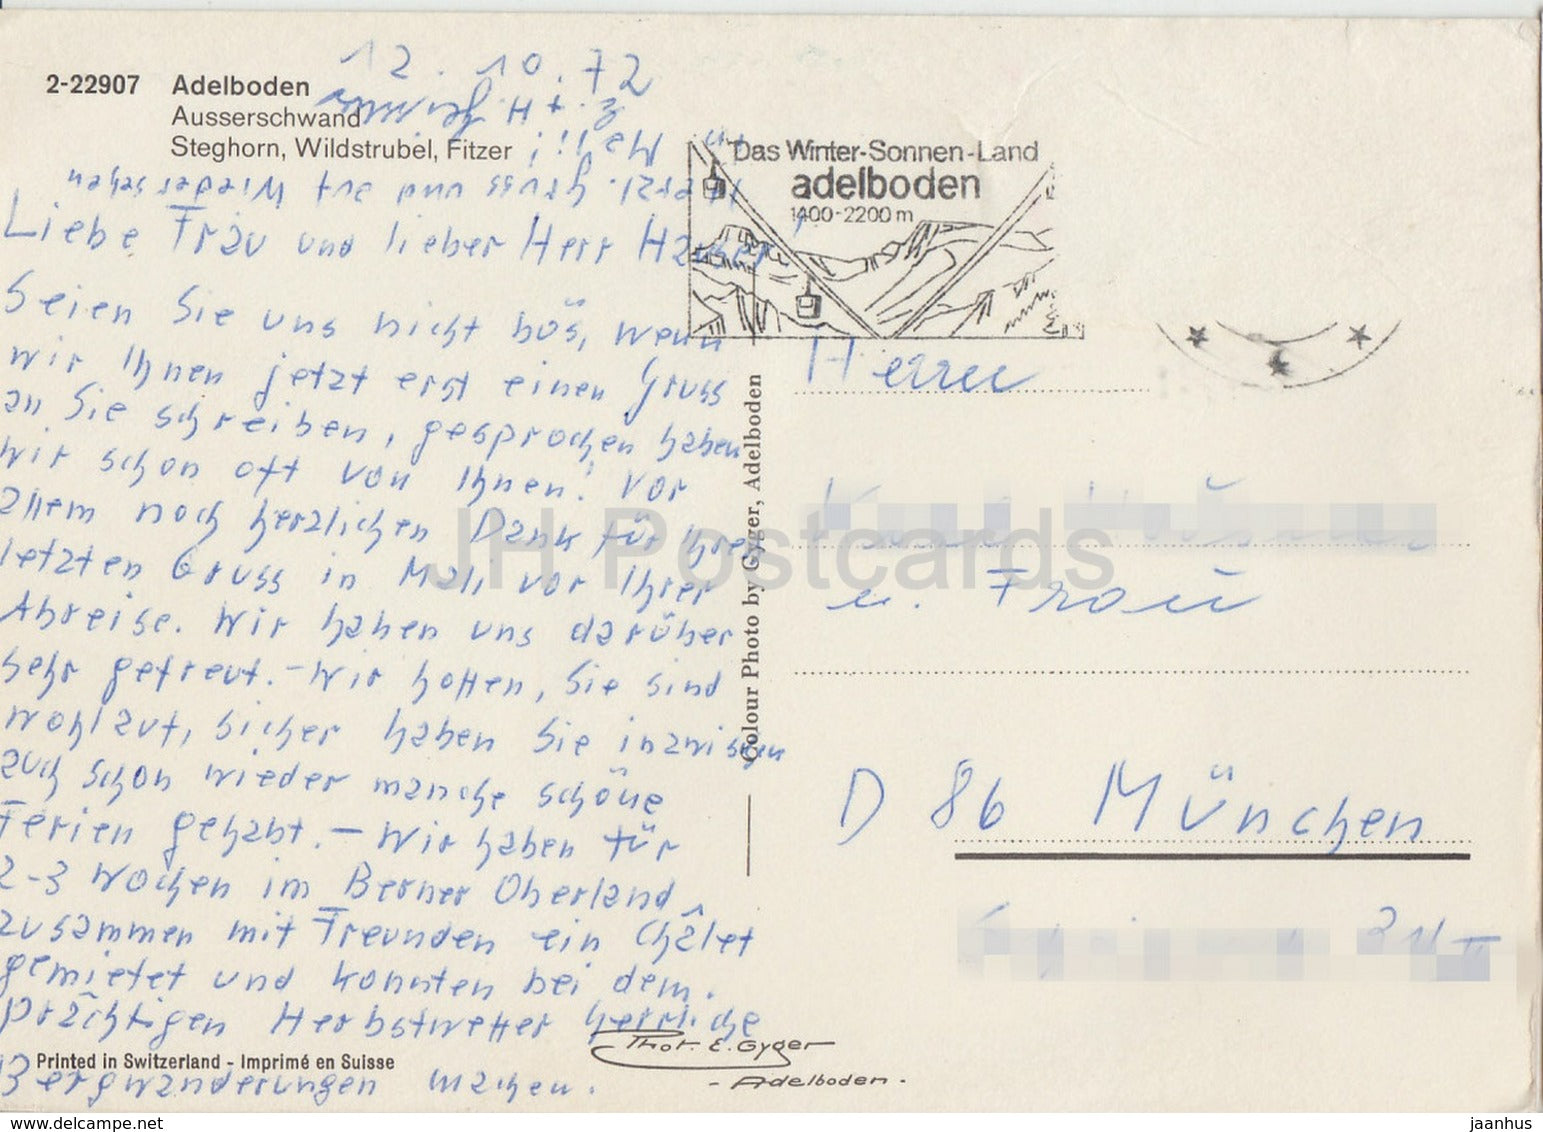 12.10.72
2-22907 Adelboden
Ausserschwand
Steghorn, Wildstrubel, Fitzer
Liebe Frau und lieber Herr
Seien Sie uns nicht bös, wenn
wir Ihnen jetzt erst einen Gruss
an Sie schreiben, gesprochen haben
wir schon oft von Ihnen! Vor
allem noch herzlichen Dank für Ihren
letzten Gruss in Mali vor Ihrer
Abreise. Wir haben uns darüber
sehr gefreut. – Wir hoffen, Sie sind
wohlauf, sicher haben Sie inzwischen
auch schon wieder manche schöne
Ferien gehabt. – Wir haben für
2-3 Wochen im Berner Oberland
zusammen mit Freunden ein Châlet
gemietet und konnten bei dem
prächtigen Herbstwetter herrliche
Bergwanderungen machen.
Herzl. Gruss und auf Wiedersehen
in Mali!
Printed in Switzerland - Imprimé en Suisse
Phot. E. Gyger
- Adelboden -
Colour Photo by Gyger, Adelboden
Das Winter-Sonnen-Land
adelboden
1400-2200 m
Herrn
u. Frau
D 86 München
JH Postcards
www.delcampe.net
jaanhus